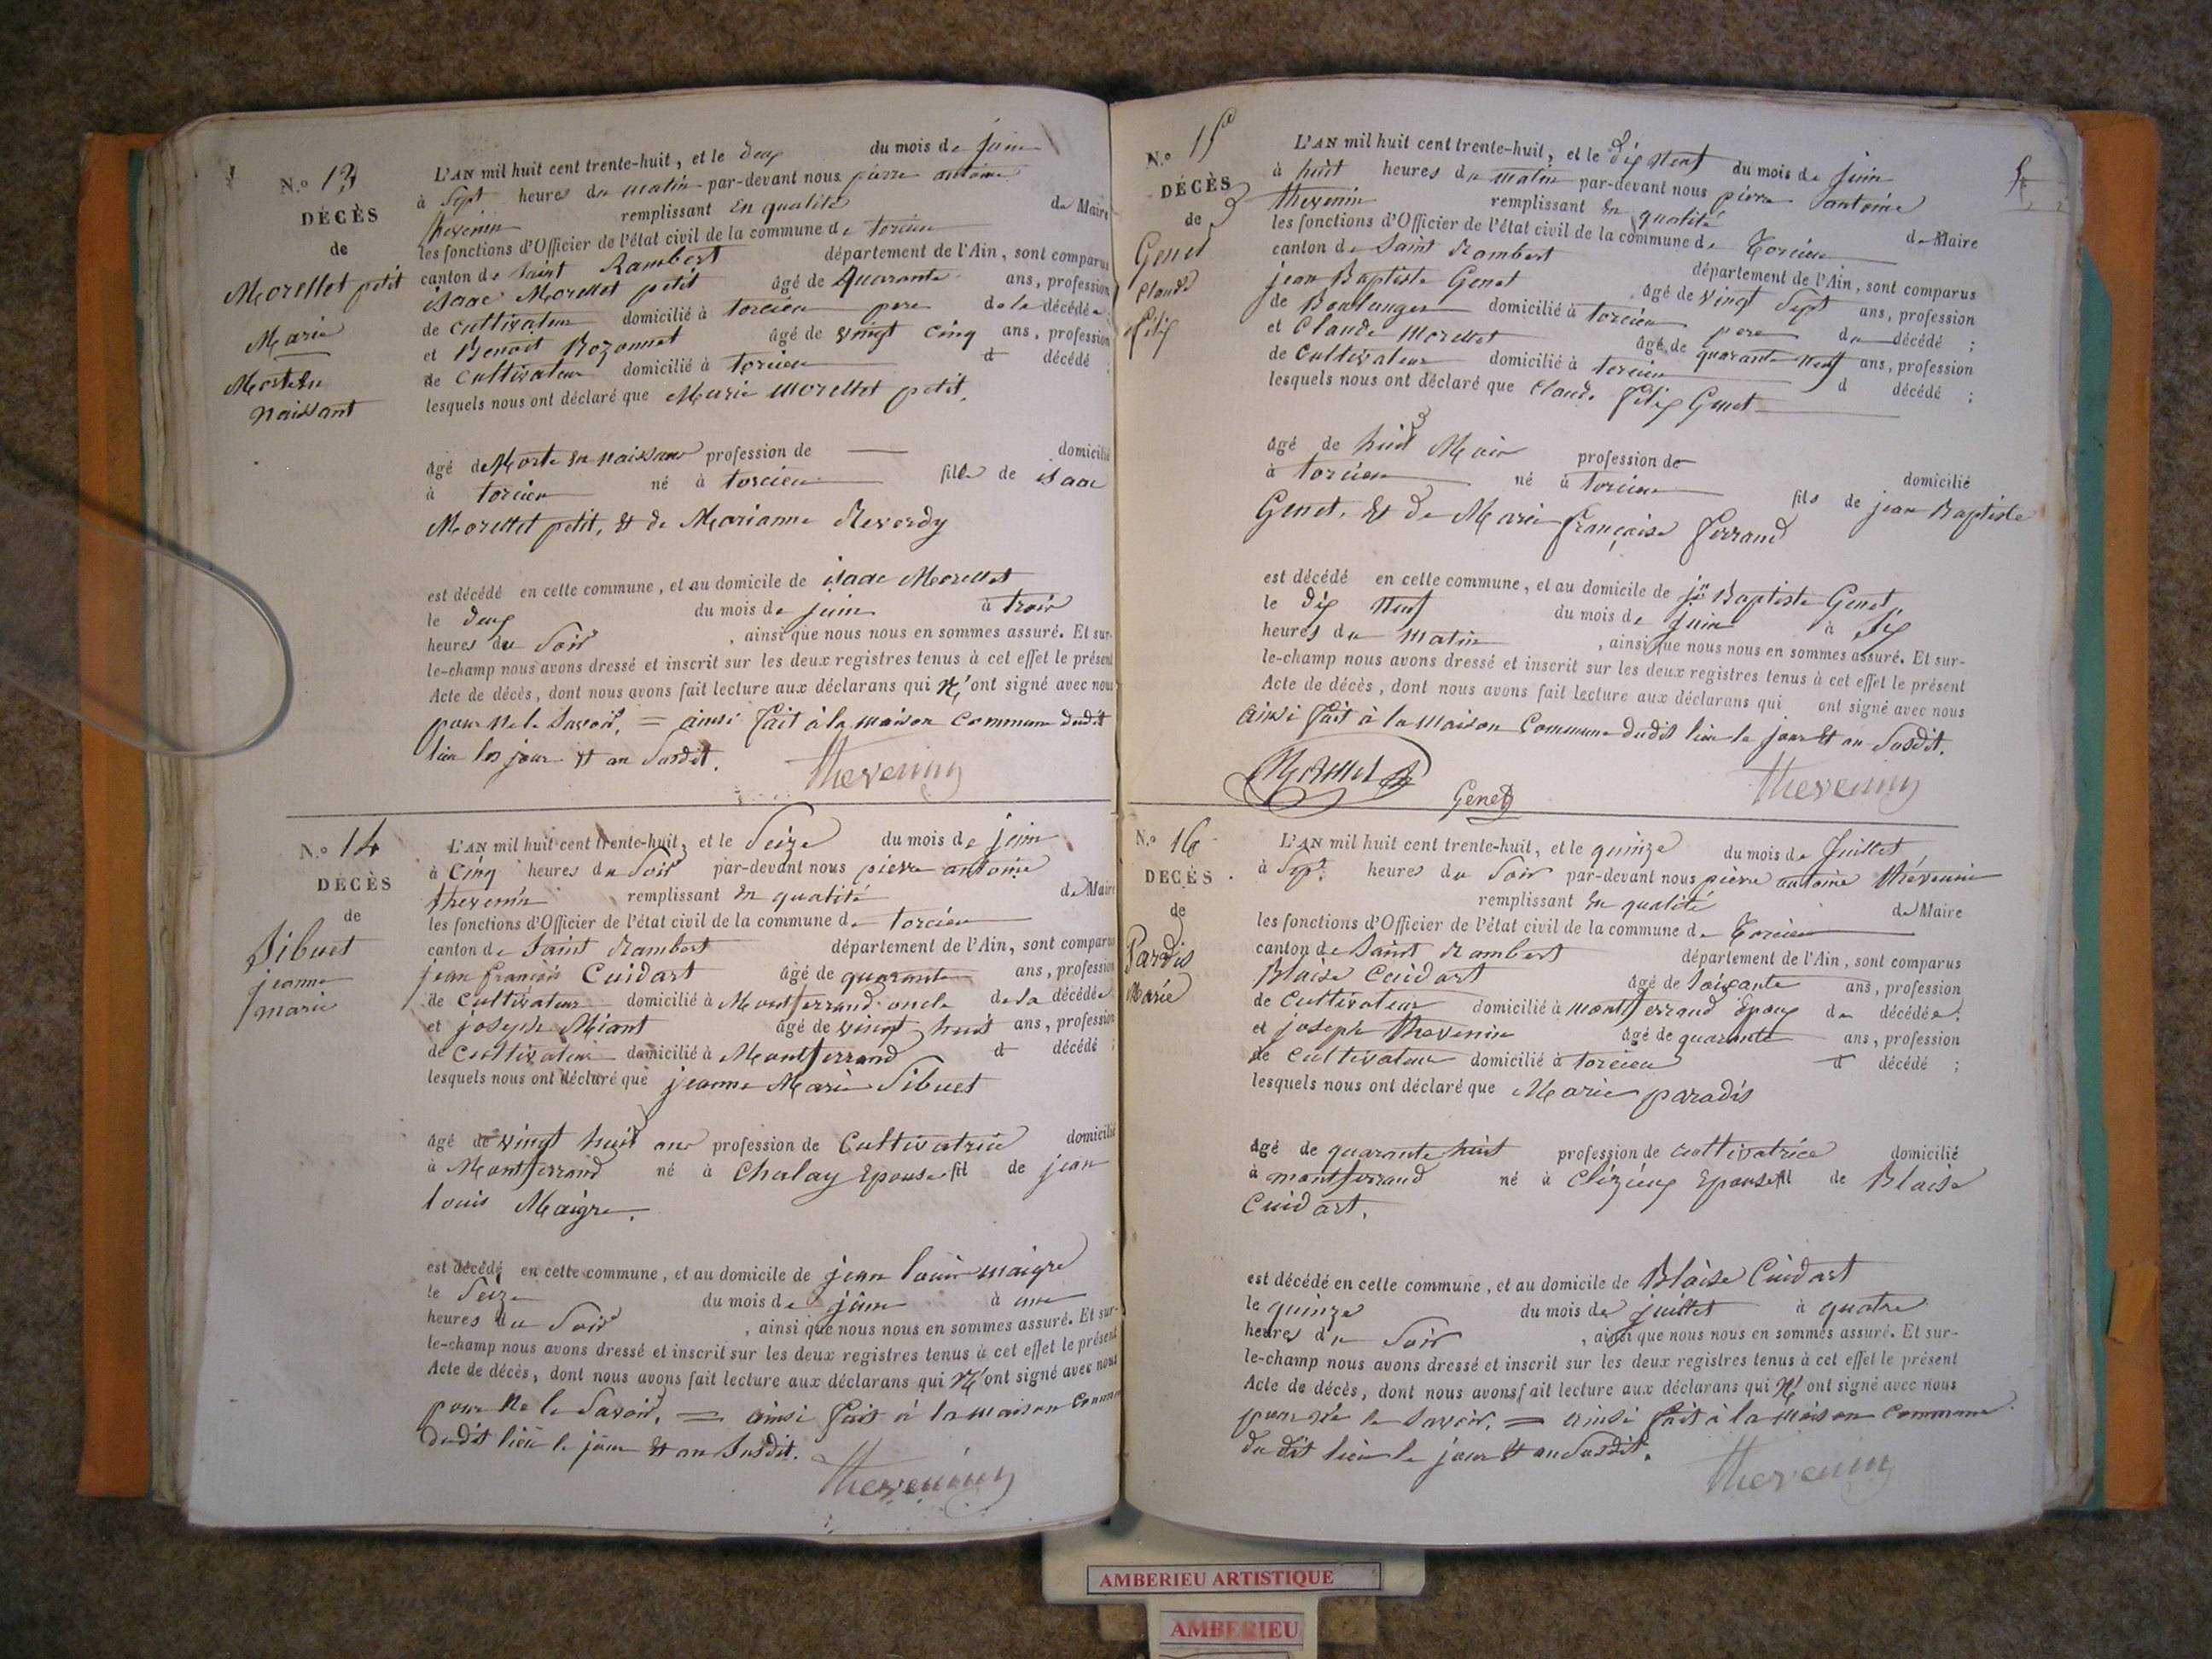 N.º 13
DÉCÈS
de
Morellet petit
Marie
Morte En
naissant
L'AN mil huit cent trente-huit, et le deux du mois de juin
à sept heures du matin par-devant nous pierre antoine
thevenin remplissant En qualité de Maire
les fonctions d'Officier de l'état civil de la commune de torcieu
canton de Saint Rambert département de l'Ain, sont comparus
isaac Morellet petit âgé de Quarante ans, profession
de Cultivateur domicilié à torcieu pere de la décédée
et Benoit Bozonnet âgé de vingt cinq ans, profession
de Cultivateur domicilié à torcieu d décédé ;
lesquels nous ont déclaré que Marie Morellet petit,
âgé de Morte En naissant profession de — domicilié
à torcieu né à torcieu fille de isaac
Morellet petit, Et de Marianne Reverdy
est décédé en cette commune, et au domicile de isaac Morellet
le deux du mois de juin à trois
heures du Soir, ainsi que nous nous en sommes assuré. Et sur-
le-champ nous avons dressé et inscrit sur les deux registres tenus à cet effet le présent
Acte de décès, dont nous avons fait lecture aux déclarans qui N'ont signé avec nous
pour Ne le Savoir, = ainsi fait à la maison Commune dudit
lieu les jour Et an Susdit.
thevenin
N.º 14
DÉCÈS
de
Sibuet
jeanne
marie
L'AN mil huit cent trente-huit, et le Seize du mois de juin
à Cinq heures du Soir par-devant nous pierre antoine
thevenin remplissant En qualité de Maire
les fonctions d'Officier de l'état civil de la commune de torcieu
canton de Saint Rambert département de l'Ain, sont comparus
jean françois Cuidart âgé de quarante ans, profession
de Cultivateur domicilié à Montferrand oncle de la décédée
et joseph Miant âgé de vingt huit ans, profession
de Cultivateur domicilié à Montferrand d décédé ;
lesquels nous ont déclaré que jeanne Marie Sibuet
âgé de vingt huit ans profession de Cultivatrice domicilié
à Montferrand né à Chaley Epouse fil de jean
louis Maigre.
est décédé en cette commune, et au domicile de jean louis maigre
le Seize du mois de juin à une
heures du Soir, ainsi que nous nous en sommes assuré. Et sur-
le-champ nous avons dressé et inscrit sur les deux registres tenus à cet effet le présent
Acte de décès, dont nous avons fait lecture aux déclarans qui N'ont signé avec nous
pour Ne le Savoir, = ainsi fait à la maison Commune
dudit lieu le jour Et an Susdit.
thevenin
N.º 15
DÉCÈS
de
Genet
Claude
felix
L'AN mil huit cent trente-huit, et le dix Neuf du mois de juin
à huit heures du matin par-devant nous pierre antoine
thevenin remplissant En qualité de Maire
les fonctions d'Officier de l'état civil de la commune de Torcieu
canton de Saint Rambert département de l'Ain, sont comparus
jean Baptiste Genet âgé de vingt Sept ans, profession
de Boulanger domicilié à torcieu pere du décédé ;
et Claude Morellet âgé de quarante Neuf ans, profession
de Cultivateur domicilié à torcieu d décédé ;
lesquels nous ont déclaré que Claude felix Genet
âgé de huit Mois profession de domicilié
à torcieu né à torcieu fils de jean Baptiste
Genet, Et de Marie françoise ferrand
est décédé en cette commune, et au domicile de jn Baptiste Genet,
le dix Neuf du mois de juin à Six
heures du matin, ainsi que nous nous en sommes assuré. Et sur-
le-champ nous avons dressé et inscrit sur les deux registres tenus à cet effet le présent
Acte de décès, dont nous avons fait lecture aux déclarans qui ont signé avec nous
ainsi fait à la Maison Commune dudit lieu le jour Et an Susdit.
Morellet Genet thevenin
N.º 16
DÉCÈS
de
Pardis
Marie
L'AN mil huit cent trente-huit, et le quinze du mois de Juillet
à Sept heures du Soir par-devant nous pierre antoine thévenin
remplissant En qualité de Maire
les fonctions d'Officier de l'état civil de la commune de Torcieu
canton de Saint Rambert département de l'Ain, sont comparus
Blaise Cuidart âgé de Soixante ans, profession
de Cultivateur domicilié à montferrand Epoux de décédée ;
et joseph thevenin âgé de quarante ans, profession
de Cultivateur domicilié à torcieu d décédé ;
lesquels nous ont déclaré que Marie paradis
âgé de quarante huit profession de cultivatrice domicilié
à montferrand né à Clézieux Epouse fil de Blaise
Cuidart.
est décédé en cette commune, et au domicile de Blaise Cuidart
le quinze du mois de juillet à quatre
heures du Soir, ainsi que nous nous en sommes assuré. Et sur-
le-champ nous avons dressé et inscrit sur les deux registres tenus à cet effet le présent
Acte de décès, dont nous avons fait lecture aux déclarans qui N'ont signé avec nous
pour Ne le Savoir, = ainsi fait à la Maison Commune
du dit lieu le jour Et an Susdit.
thevenin
AMBERIEU ARTISTIQUE
AMBERIEU